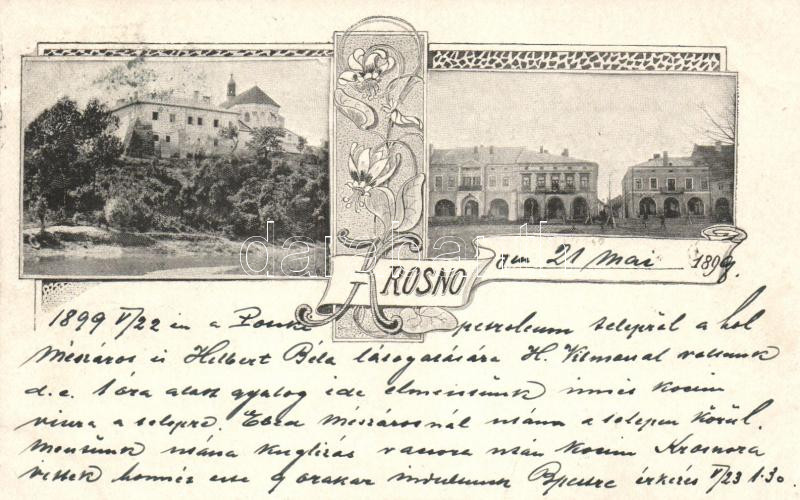 KROSNO
21 Mai 1899.
1899 V/22 én a petroleum telepről a hol
Mészáros és Hilbert Béla látogatására H. voltunk
d.e. 1 óra alatt gyalog ide elmentünk innét kocsin
vissza a telepre. Ebéd Mészárosnál utána a telepen körül
mentünk utána kuglizás vacsora után kocsin Krosnora
vittek honnét este 9 órakor indultunk Bpestre érkezés V/23 1.30